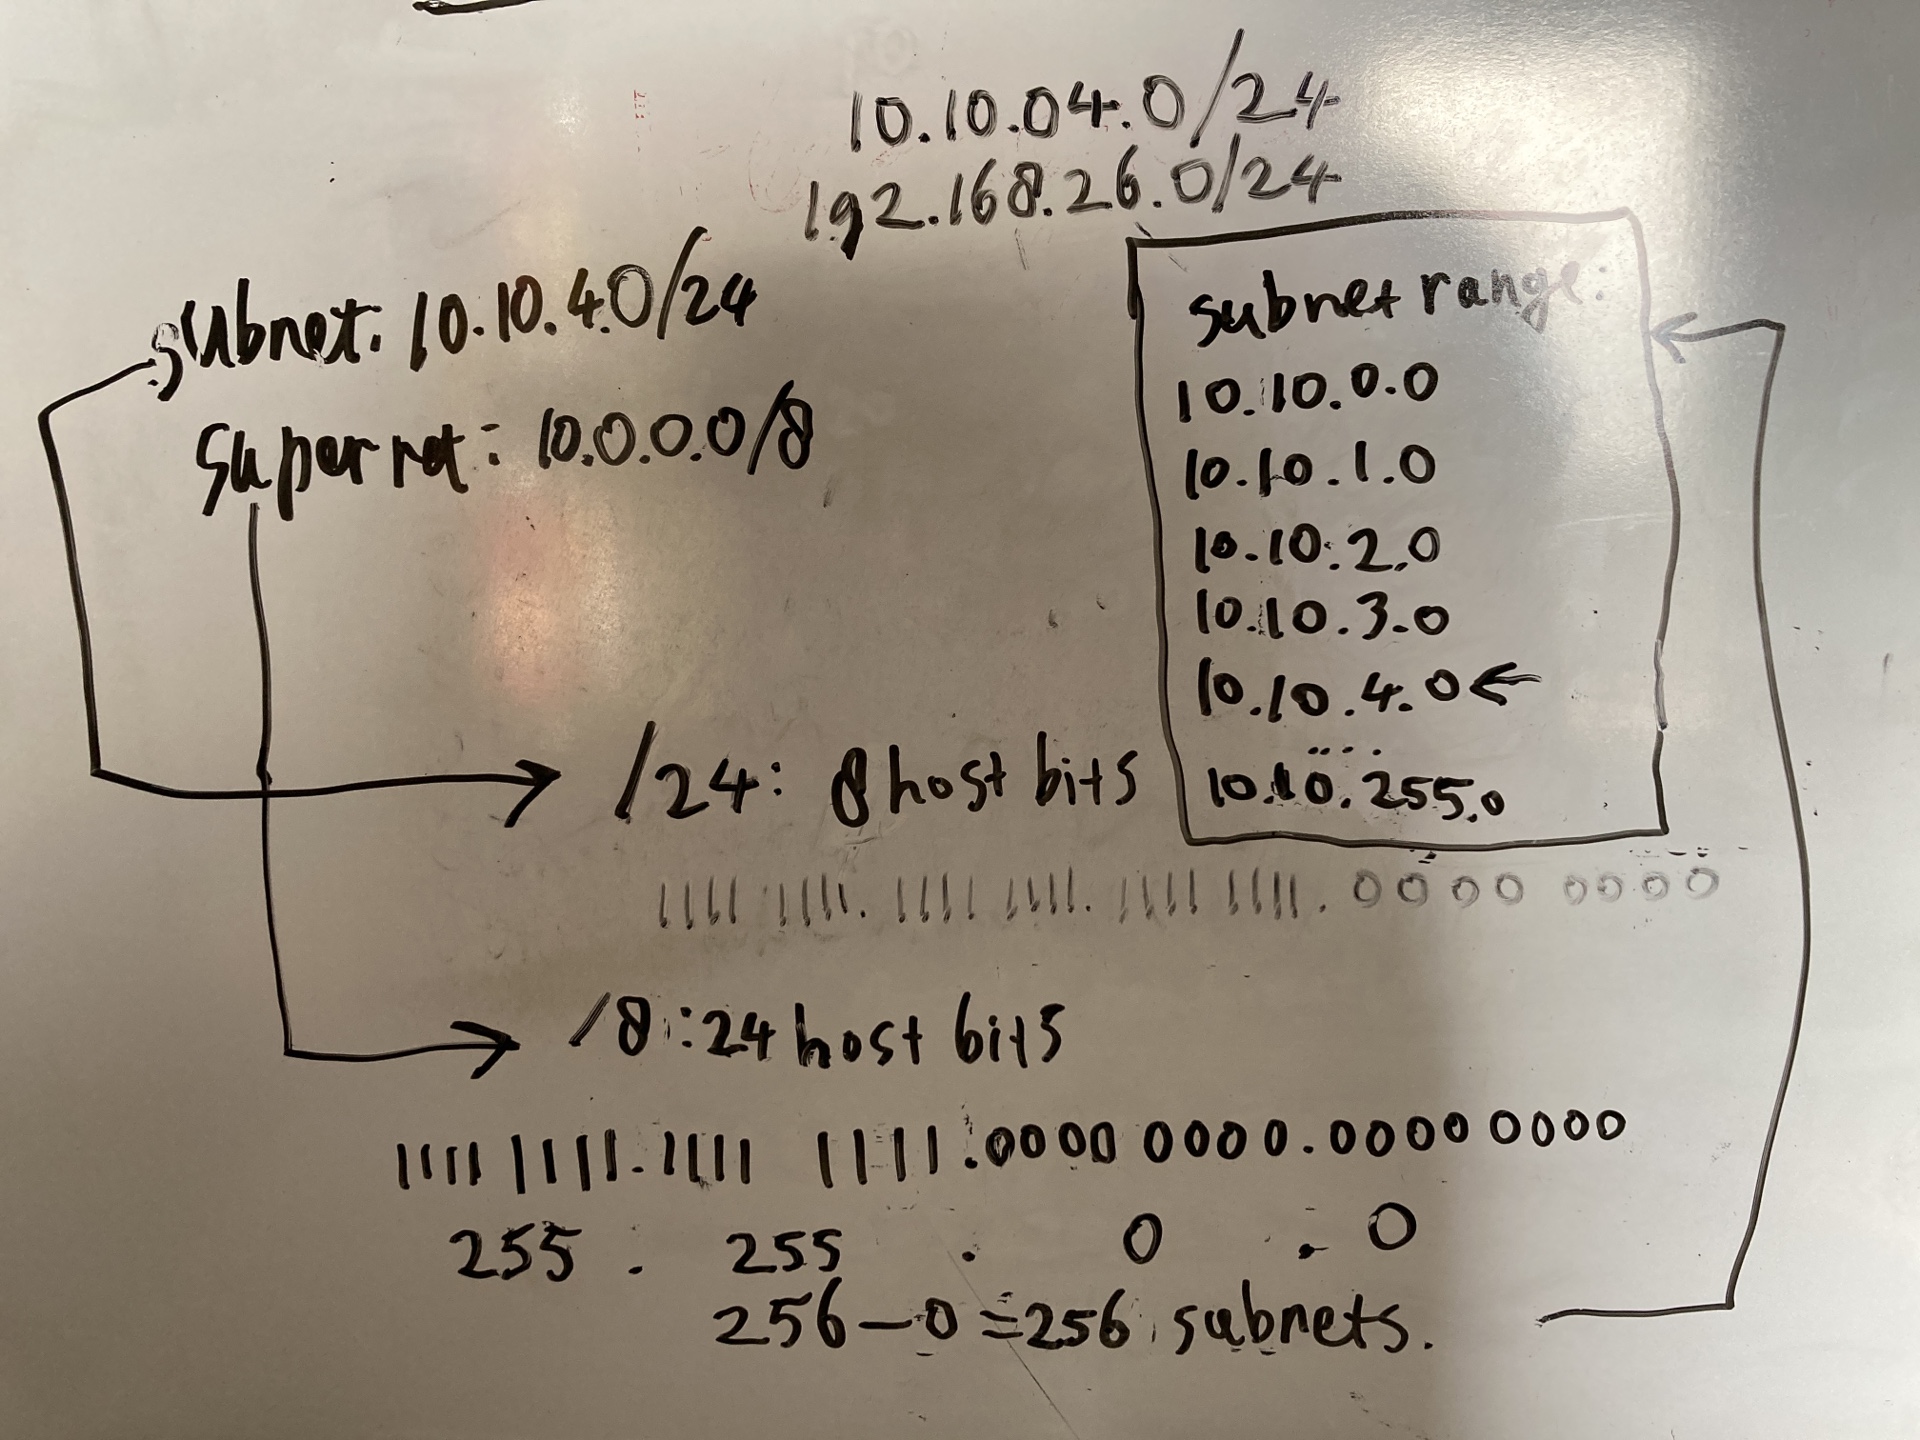 10.10.04.0/24
192.168.26.0/24
subnet: 10.10.4.0/24
supernet: 10.0.0.0/8
subnet range:
10.10.0.0
10.10.1.0
10.10.2.0
10.10.3.0
10.10.4.0 ←
....
10.10.255.0
/24: 8 host bits
1111 1111. 1111 1111. 1111 1111. 0000 0000
/8: 24 host bits
1111 1111.1111 1111.0000 0000.0000 0000
255 . 255 . 0 . 0
256-0=256 subnets.